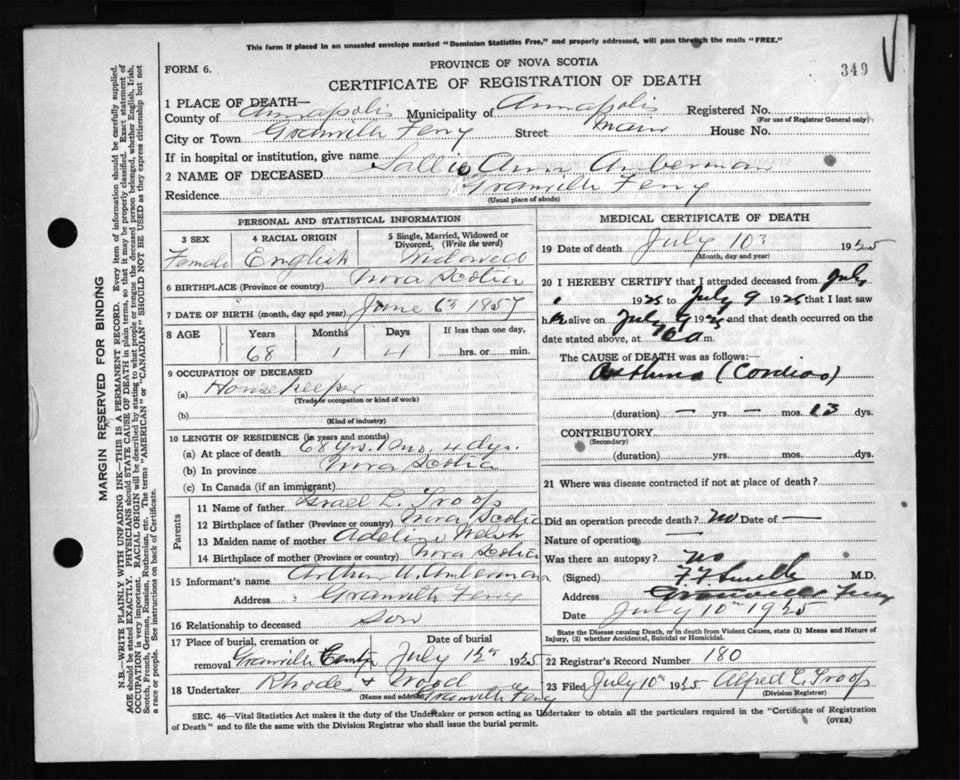 This form if placed in an unsealed envelope marked "Dominion Statistics Free," and properly addressed, will pass through the mails "FREE."
FORM 6.
PROVINCE OF NOVA SCOTIA
349
CERTIFICATE OF REGISTRATION OF DEATH
1 PLACE OF DEATH—
County of Annapolis Municipality of Annapolis Registered No.
(For use of Registrar General only)
City or Town Granville Ferry Street Main House No.
If in hospital or institution, give name
2 NAME OF DECEASED Sallie Ann Amberman
Residence Granville Ferry
(Usual place of abode)
PERSONAL AND STATISTICAL INFORMATION
3 SEX 4 RACIAL ORIGIN 5 Single, Married, Widowed or Divorced, (Write the word)
Female English Widowed
6 BIRTHPLACE (Province or country) Nova Scotia
7 DATE OF BIRTH (month, day and year) June 6th 1857
8 AGE Years Months Days If less than one day,
68 1 4 hrs. or min.
9 OCCUPATION OF DECEASED
(a) Housekeeper
(Trade or occupation or kind of work)
(b)
(Kind of industry)
10 LENGTH OF RESIDENCE (in years and months)
(a) At place of death 68 yrs. 1 mo. 4 dys.
(b) In province Nova Scotia
(c) In Canada (if an immigrant)
Parents
11 Name of father Israel L. Troop
12 Birthplace of father (Province or country) Nova Scotia
13 Maiden name of mother Welsh
14 Birthplace of mother (Province or country) Nova Scotia
15 Informant's name Arthur W. Amberman
Address Granville Ferry
16 Relationship to deceased Son
17 Place of burial, cremation or removal Granville Centre
Date of burial July 12th 1925
18 Undertaker Rhode & Wood
(Name and address) Granville Ferry
MEDICAL CERTIFICATE OF DEATH
19 Date of death July 10th 1925
(Month, day and year)
20 I HEREBY CERTIFY that I attended deceased from July
1925 to July 9 1925 that I last saw
her alive on July 9 1925 and that death occurred on the
date stated above, at a m.
The CAUSE of DEATH was as follows:
Asthma (Cardiac)
(duration) — yrs. — mos. 13 dys.
CONTRIBUTORY
(Secondary)
(duration) yrs. mos. dys.
21 Where was disease contracted if not at place of death?
Did an operation precede death? No Date of —
Nature of operation —
Was there an autopsy? No
(Signed) M.D.
Address Granville Ferry
Date July 10th 1925
State the Disease causing Death, or in death from Violent Causes, state (1) Means and Nature of Injury, (2) whether Accidental, Suicidal or Homicidal.
22 Registrar's Record Number 180
23 Filed July 10th 1925 Alfred E. Troop
(Division Registrar)
SEC. 46—Vital Statistics Act makes it the duty of the Undertaker or person acting as Undertaker to obtain all the particulars required in the "Certificate of Registration
of Death" and to file the same with the Division Registrar who shall issue the burial permit.
(OVER)
MARGIN RESERVED FOR BINDING
N.B.—WRITE PLAINLY WITH UNFADING INK—THIS IS A PERMANENT RECORD. Every item of information should be carefully supplied.
AGE should be stated EXACTLY. PHYSICIANS should STATE CAUSE OF DEATH in plain terms, so that it may be properly classified. Exact statement of
OCCUPATION is very important. RACIAL ORIGIN will be described by stating to what people or tongue the deceased person belonged, whether English, Irish,
Scotch, French, German, Russian, Ruthenian, etc. The terms "AMERICAN" or "CANADIAN" SHOULD NOT BE USED as they express citizenship but not
a race or people. See instructions on back of Certificate.